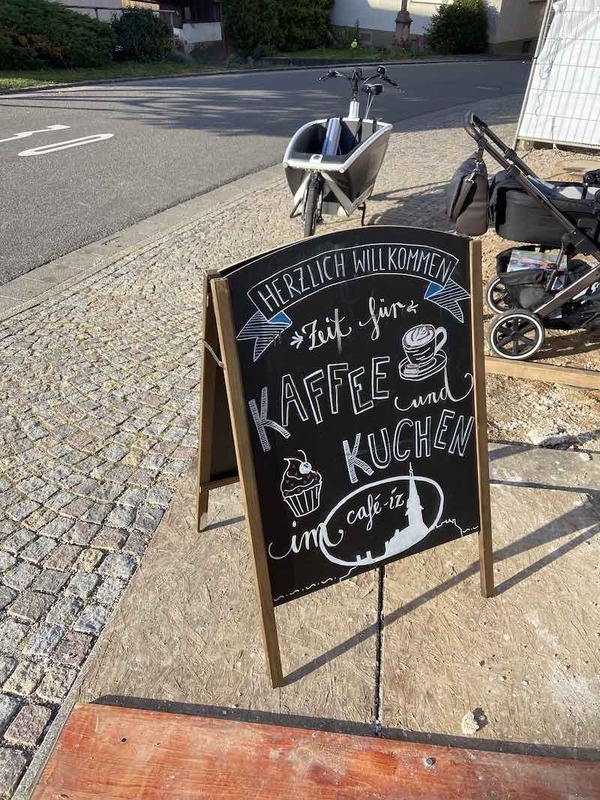 HERZLICH WILLKOMMEN
Zeit für
KAFFEE
und
KUCHEN
im café-iz
30